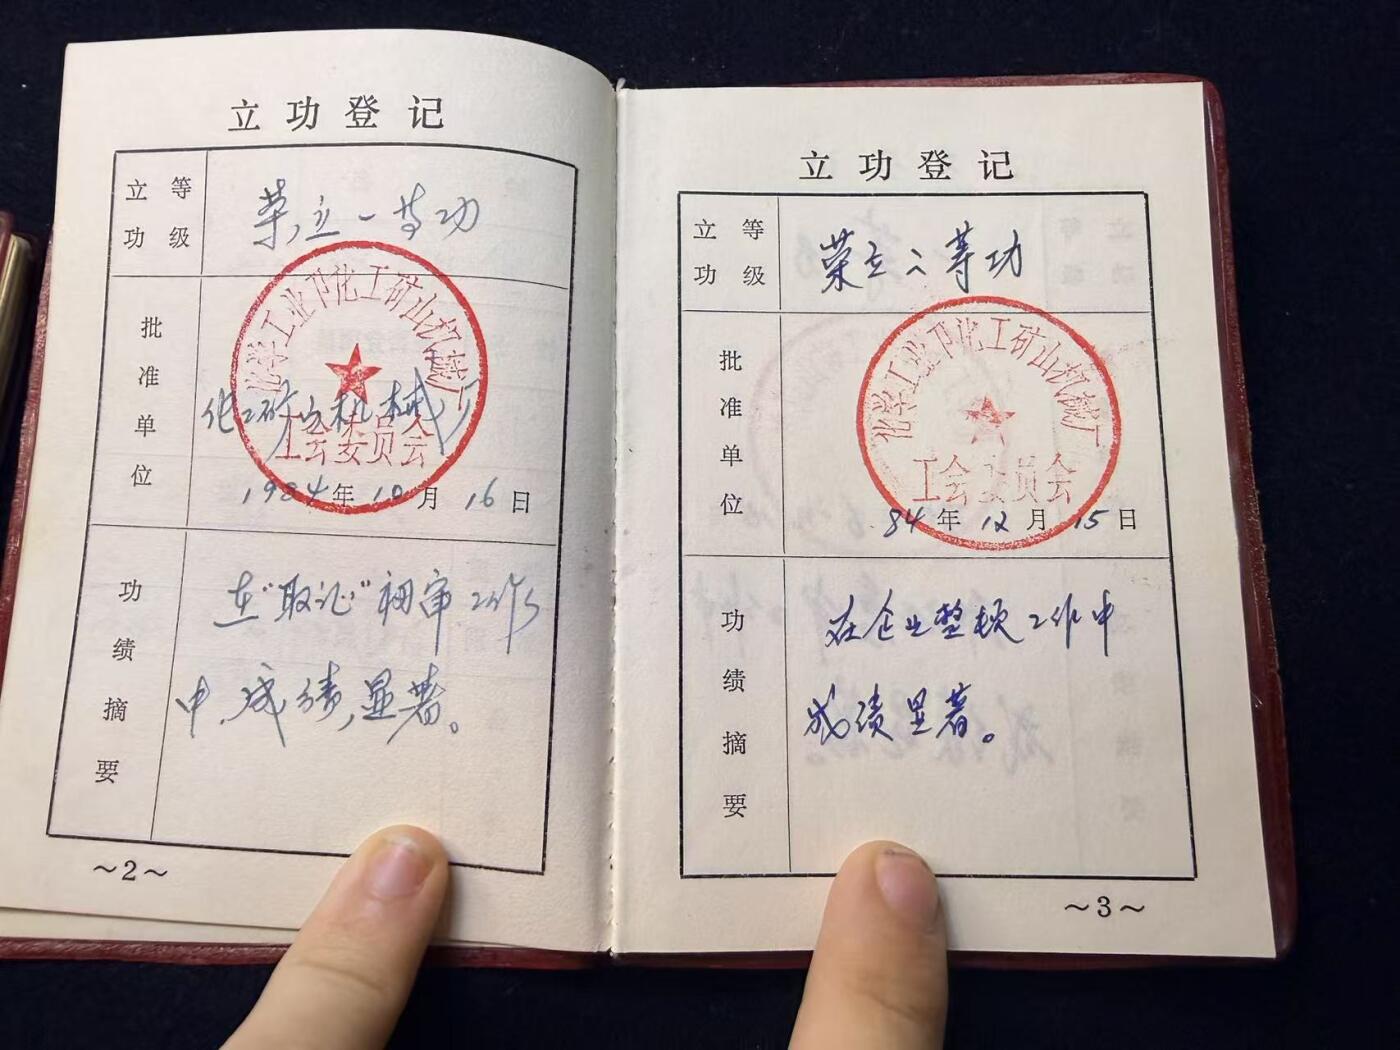 立功登记
立功等级
荣立一等功
批准单位
化学工业部化工矿山机械厂
工会委员会
化工矿山机械厂
1984年10月16日
功绩摘要
在“取证”初审工作
中,成绩显著。
~2~
立功登记
立功等级
荣立二等功
批准单位
化学工业部化工矿山机械厂
工会委员会
84年12月15日
功绩摘要
在企业整顿工作中
成绩显著。
~3~